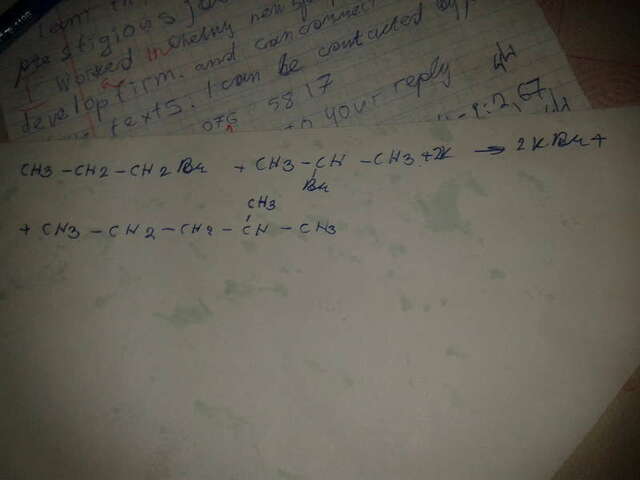 I am
prestigious
I worked in
develop firm. and can connect
texts. I can be contacted by
075 5817
your reply
2,67
CH3 – CH2 – CH2 Br + CH3 – CH – CH3 + 2K → 2K Br +
Br
CH3
+ CH3 – CH2 – CH2 – CH – CH3